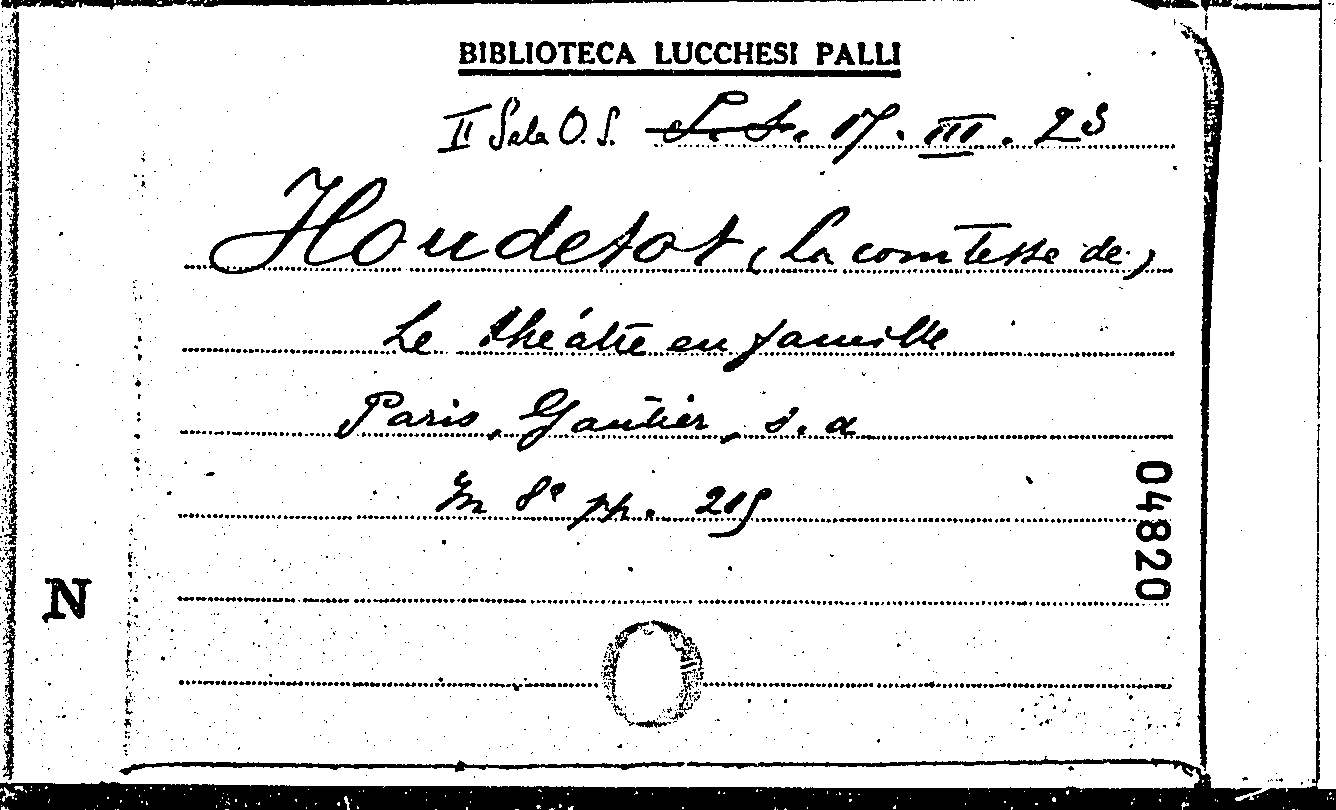 BIBLIOTECA LUCCHESI PALLI
II Sala O. S. S. S. 17. III. 23
Houdetot (La comtesse de)
Le théâtre en famille
Paris, Gautier, s. a
In 8° pp. 215
04820
N